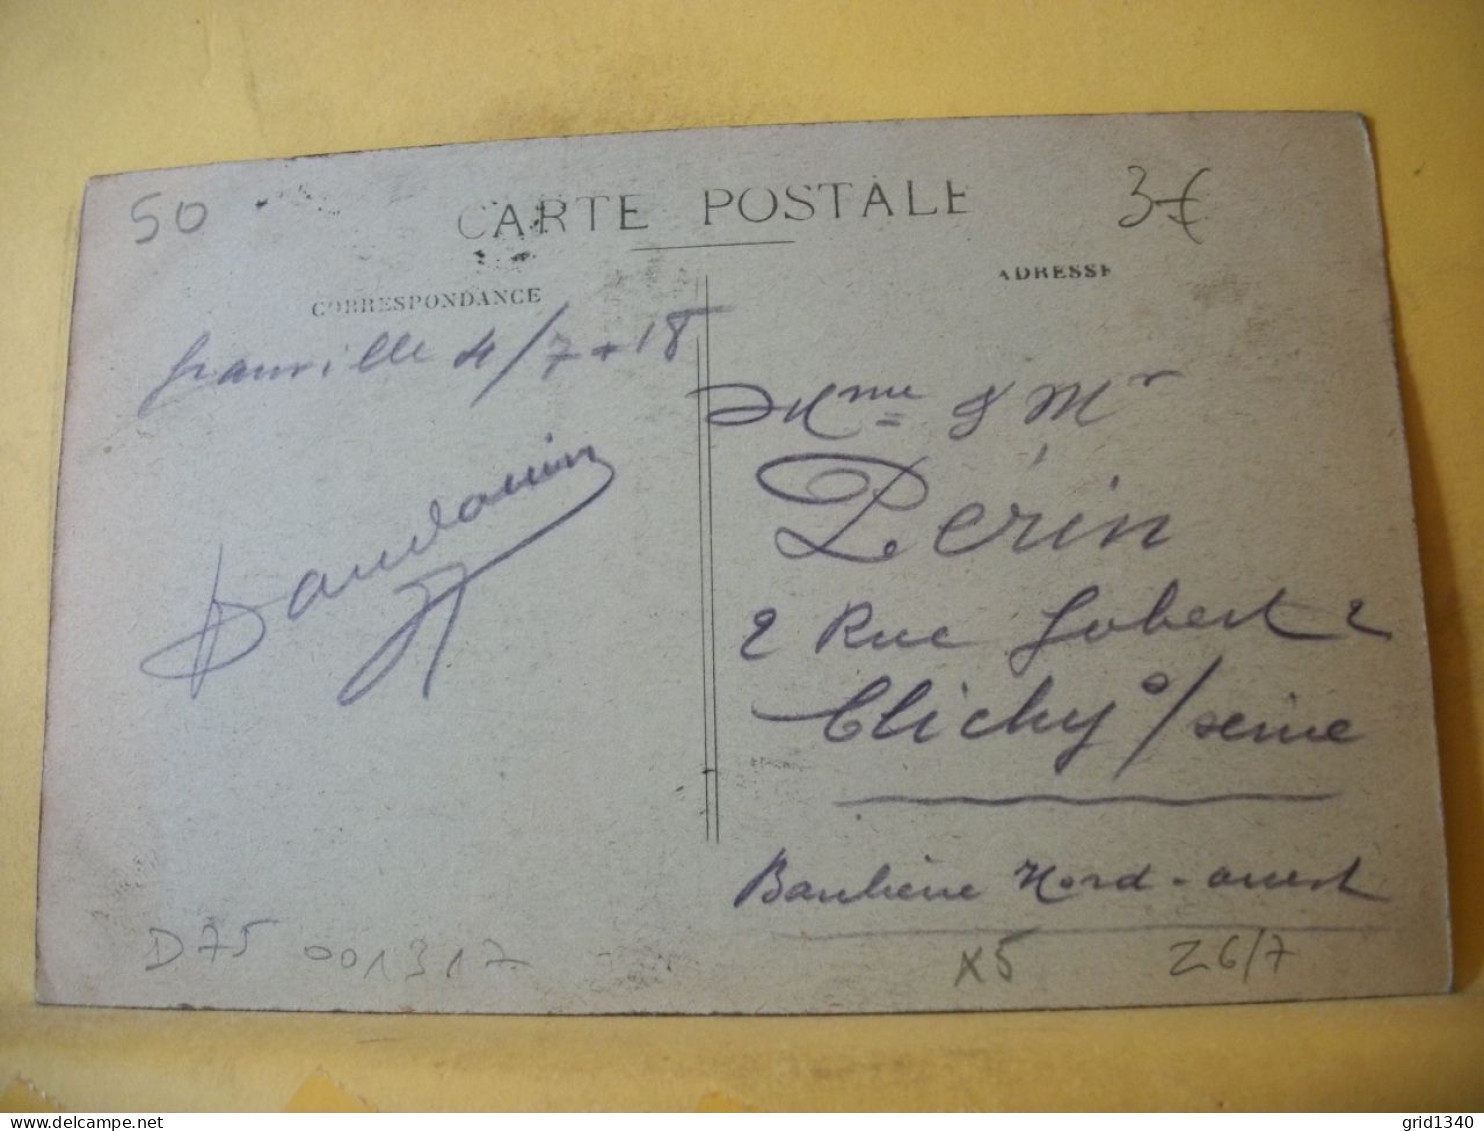 50
CARTE POSTALE
3€
CORRESPONDANCE
ADRESSE
Granville 4/7-18
Mme & Mr
Périn
2 Rue Gobert 2
Clichy s/seine
Banlieue Nord-ouest
D75 001317
x5
26/7
delcampe.net
grid1340